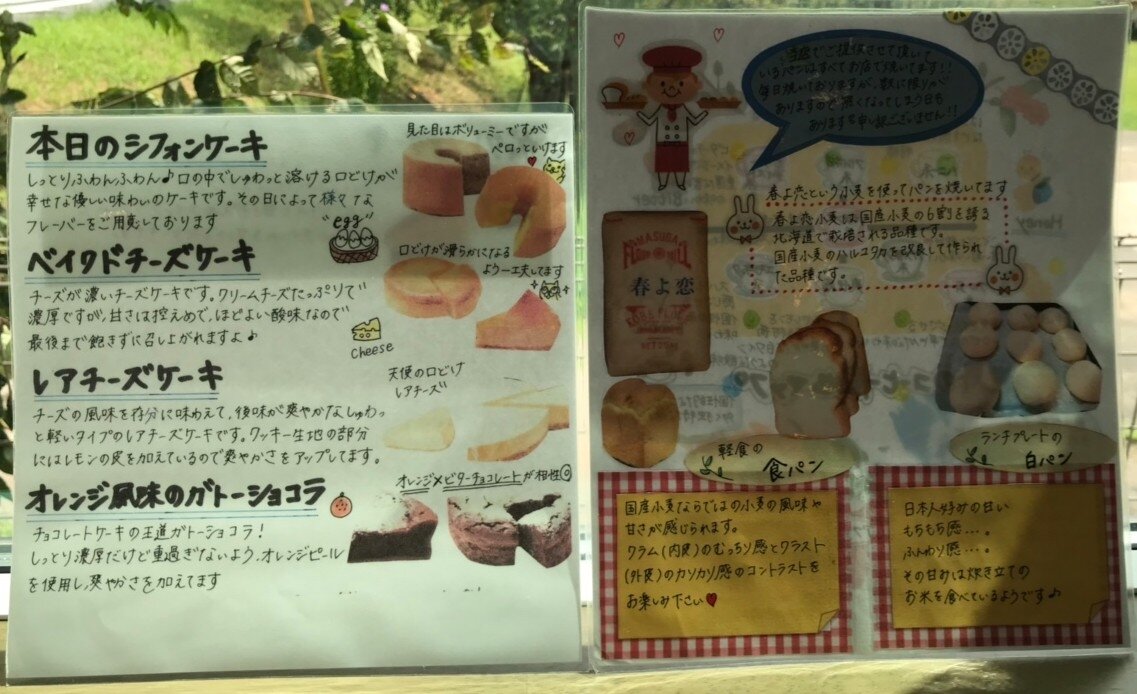 本日のシフォンケーキ
しっとりふわんふわん♪口の中でしゅわっと溶ける口どけが
幸せな優しい味わいのケーキです。その日によって様々な
フレーバーをご用意しております
見た目はボリューミーですが
ペロッといけます
"egg"
ベイクドチーズケーキ
チーズが濃いチーズケーキです。クリームチーズたっぷりで
濃厚ですが、甘さは控えめで、ほどよい酸味なので
最後まで飽きずに召し上がれますよ♪
口どけが滑らかになる
よう一工夫してます
cheese
レアチーズケーキ
チーズの風味を存分に味わえて、後味が爽やかなしゅわっ
と軽いタイプのレアチーズケーキです。クッキー生地の部分
にはレモンの皮を加えているので爽やかさをアップしてます。
天使の口どけ
レアチーズ
オレンジ風味のガトーショコラ
チョコレートケーキの王道ガトーショコラ!
しっとり濃厚だけど重過ぎないよう、オレンジピール
を使用し、爽やかさを加えてます
オレンジ×ビターチョコレートが相性◎
当店でご提供させて頂いて
いるパンはすべてお店で焼いてます!!
毎日焼いておりますが、数に限りが
ありますので無くなってしまう日も
あります 申し訳ございません!!
春よ恋という小麦を使ってパンを焼いてます
春よ恋小麦は国産小麦の6割を誇る
北海道で栽培される品種です。
国産小麦のハルユタカを改良して作られ
た品種です。
春よ恋
軽食の
食パン
ランチプレートの
白パン
国産小麦ならではの小麦の風味や
甘さが感じられます。
クラム(内皮)のむっちり感とクラスト
(外皮)のカリカリ感のコントラストを
お楽しみ下さい♥
日本人好みの甘い
もちもち感…。
ふんわり感…。
その甘みは炊き立ての
お米を食べているようです♪